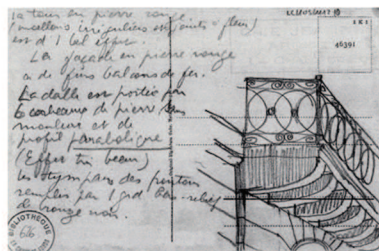 la tour en pierre rouge
(moellons irréguliers et joints + fleur)
est d'1 bel effet.
La façade en pierre rouge
a de fins balcons de fer.
La dalle est portée par
6 corbeaux de pierre sans
moulure et de
profil parabolique
(Effet très beau)
les tympans des frontons
remplis par 1 grd bas-relief
de rouge noir.
46391
BIBLIOTHEQUE